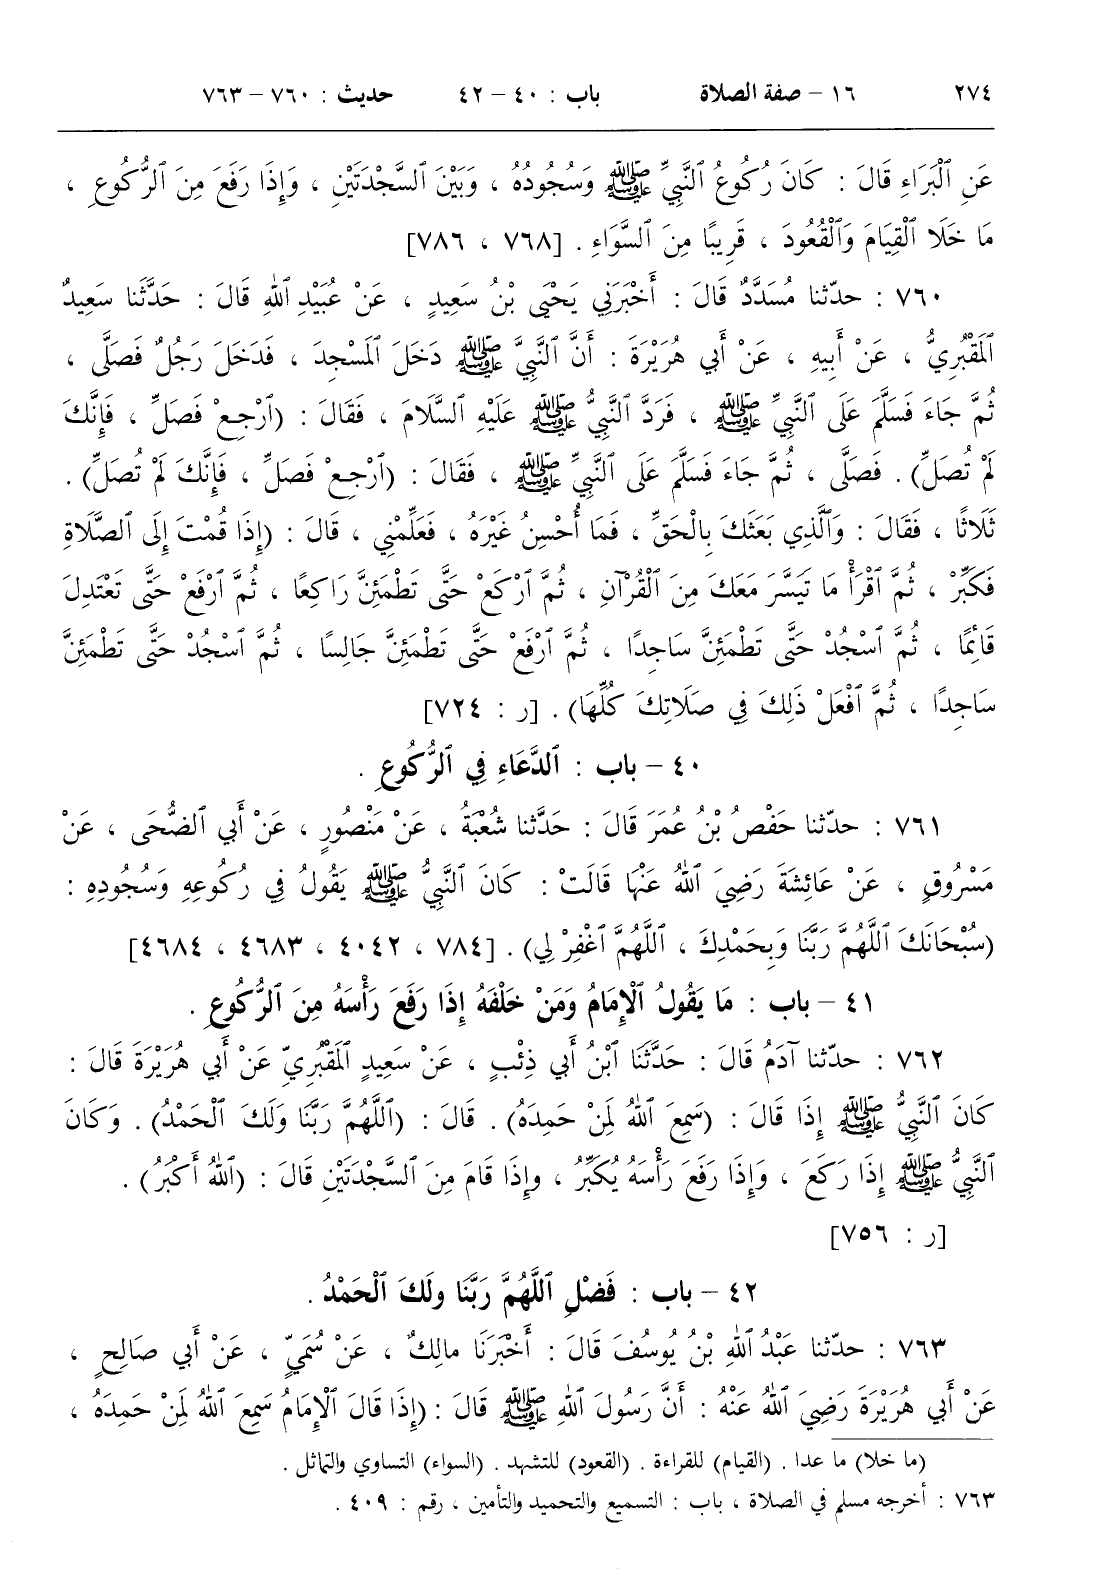 ٢٧٤ ١٦ - صفة الصلاة باب : ٤٠ - ٤٢ حديث : ٧٦٠ - ٧٦٣
عَنِ ٱلْبَرَاءِ قَالَ : كَانَ رُكُوعُ ٱلنَّبِيِّ ﷺ وَسُجُودُهُ ، وَبَيْنَ ٱلسَّجْدَتَيْنِ ، وَإِذَا رَفَعَ مِنَ ٱلرُّكُوعِ ،
مَا خَلَا ٱلْقِيَامَ وَٱلْقُعُودَ ، قَرِيبًا مِنَ ٱلسَّوَاءِ . [٧٦٨ ، ٧٨٦]
٧٦٠ : حدّثنا مُسَدَّدٌ قَالَ : أَخْبَرَنِي يَحْيَى بْنُ سَعِيدٍ ، عَنْ عُبَيْدِ ٱللهِ قَالَ : حَدَّثَنا سَعِيدٌ
ٱلْمَقْبُرِيُّ ، عَنْ أَبِيهِ ، عَنْ أَبِي هُرَيْرَةَ : أَنَّ ٱلنَّبِيَّ ﷺ دَخَلَ ٱلْمَسْجِدَ ، فَدَخَلَ رَجُلٌ فَصَلَّى ،
ثُمَّ جَاءَ فَسَلَّمَ عَلَى ٱلنَّبِيِّ ﷺ ، فَرَدَّ ٱلنَّبِيُّ ﷺ عَلَيْهِ ٱلسَّلَامَ ، فَقَالَ : (ٱرْجِعْ فَصَلِّ ، فَإِنَّكَ
لَمْ تُصَلِّ) . فَصَلَّى ، ثُمَّ جَاءَ فَسَلَّمَ عَلَى ٱلنَّبِيِّ ﷺ ، فَقَالَ : (ٱرْجِعْ فَصَلِّ ، فَإِنَّكَ لَمْ تُصَلِّ) .
ثَلَاثًا ، فَقَالَ : وَٱلَّذِي بَعَثَكَ بِالْحَقِّ ، فَمَا أُحْسِنُ غَيْرَهُ ، فَعَلِّمْنِي ، قَالَ : (إِذَا قُمْتَ إِلَى ٱلصَّلَاةِ
فَكَبِّرْ ، ثُمَّ ٱقْرَأْ مَا تَيَسَّرَ مَعَكَ مِنَ ٱلْقُرْآنِ ، ثُمَّ ٱرْكَعْ حَتَّى تَطْمَئِنَّ رَاكِعًا ، ثُمَّ ٱرْفَعْ حَتَّى تَعْتَدِلَ
قَائِمًا ، ثُمَّ ٱسْجُدْ حَتَّى تَطْمَئِنَّ سَاجِدًا ، ثُمَّ ٱرْفَعْ حَتَّى تَطْمَئِنَّ جَالِسًا ، ثُمَّ ٱسْجُدْ حَتَّى تَطْمَئِنَّ
سَاجِدًا ، ثُمَّ ٱفْعَلْ ذَلِكَ فِي صَلَاتِكَ كُلِّهَا) . [ر : ٧٢٤]
٤٠ - باب : ٱلدُّعَاءِ فِي ٱلرُّكُوعِ .
٧٦١ : حدّثنا حَفْصُ بْنُ عُمَرَ قَالَ : حَدَّثَنا شُعْبَةُ ، عَنْ مَنْصُورٍ ، عَنْ أَبِي ٱلضُّحَى ، عَنْ
مَسْرُوقٍ ، عَنْ عَائِشَةَ رَضِيَ ٱللهُ عَنْهَا قَالَتْ : كَانَ ٱلنَّبِيُّ ﷺ يَقُولُ فِي رُكُوعِهِ وَسُجُودِهِ :
(سُبْحَانَكَ ٱللَّهُمَّ رَبَّنَا وَبِحَمْدِكَ ، ٱللَّهُمَّ ٱغْفِرْ لِي) . [٧٨٤ ، ٤٠٤٢ ، ٤٦٨٣ ، ٤٦٨٤]
٤١ - باب : مَا يَقُولُ ٱلْإِمَامُ وَمَنْ خَلْفَهُ إِذَا رَفَعَ رَأْسَهُ مِنَ ٱلرُّكُوعِ .
٧٦٢ : حدّثنا آدَمُ قَالَ : حَدَّثَنَا ٱبْنُ أَبِي ذِئْبٍ ، عَنْ سَعِيدٍ ٱلْمَقْبُرِيِّ عَنْ أَبِي هُرَيْرَةَ قَالَ :
كَانَ ٱلنَّبِيُّ ﷺ إِذَا قَالَ : (سَمِعَ ٱللهُ لِمَنْ حَمِدَهُ) . قَالَ : (ٱللَّهُمَّ رَبَّنَا وَلَكَ ٱلْحَمْدُ) . وَكَانَ
ٱلنَّبِيُّ ﷺ إِذَا رَكَعَ ، وَإِذَا رَفَعَ رَأْسَهُ يُكَبِّرُ ، وإِذَا قَامَ مِنَ ٱلسَّجْدَتَيْنِ قَالَ : (ٱللهُ أَكْبَرُ) .
[ر : ٧٥٦]
٤٢ - باب : فَضْلِ ٱللَّهُمَّ رَبَّنَا ولَكَ ٱلْحَمْدُ .
٧٦٣ : حدّثنا عَبْدُ ٱللهِ بْنُ يُوسُفَ قَالَ : أَخْبَرَنَا مالِكٌ ، عَنْ سُمَيٍّ ، عَنْ أَبِي صَالِحٍ ،
عَنْ أَبِي هُرَيْرَةَ رَضِيَ ٱللهُ عَنْهُ : أَنَّ رَسُولَ ٱللهِ ﷺ قَالَ : (إِذَا قَالَ ٱلْإِمَامُ سَمِعَ ٱللهُ لِمَنْ حَمِدَهُ ،
(ما خلا) ما عدا . (القيام) للقراءة . (القعود) للتشهد . (السواء) التساوي والتماثل .
٧٦٣ : أخرجه مسلم في الصلاة ، باب : التسميع والتحميد والتأمين ، رقم : ٤٠٩ .